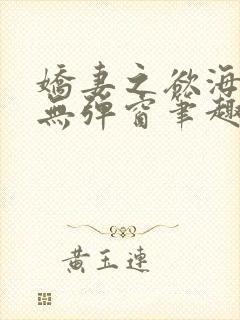 嬌妻之欲海
無彈窗筆趣
黃玉連